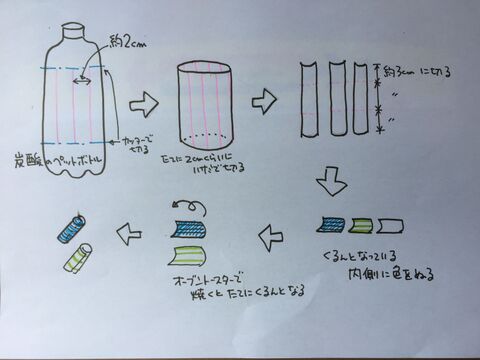 約2cm
カッターで
切る
炭酸のペットボトル
たてに2cmくらいに
ハサミで切る
約3cmに切る
〃
〃
くるんとなっている
内側に色をぬる
オーブントースターで
焼くとたてにくるんとなる